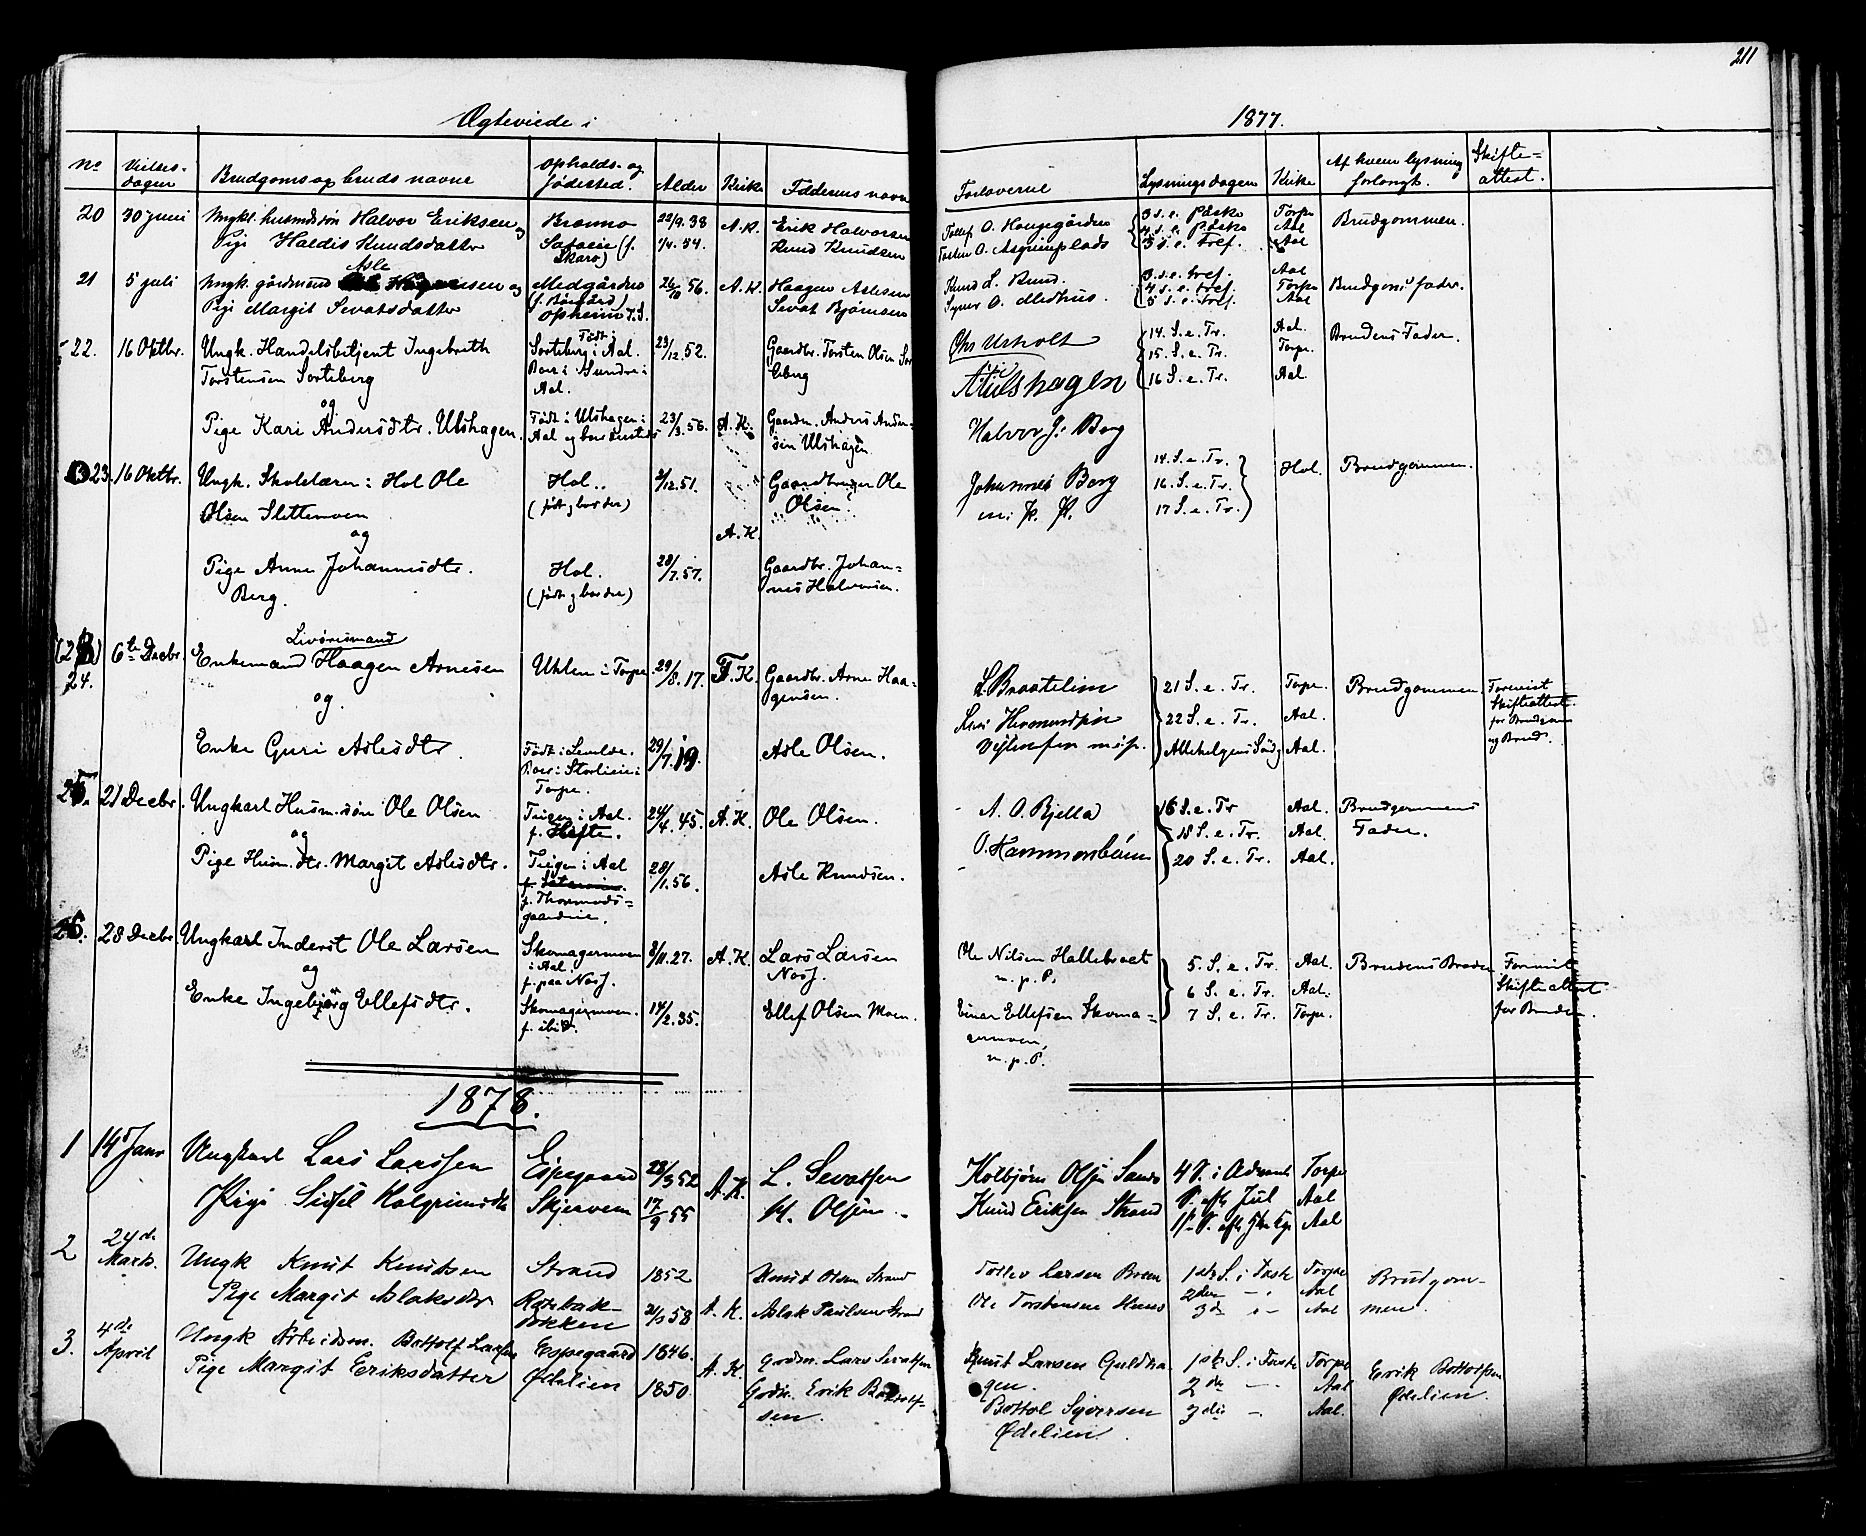 211
Ægteviede i 1877.
No Vielses-dagen Brudgoms og bruds navne Opholds- og fødested. Alder Kirke Fædrenes navne Forloverne Lysningsdagen Kirke Af hvem lysning forlangt. Skifte=attest.
20 30 juni Ungk. husmdssøn Halvor Eriksen og 22/9.38 A.K. Erik Halvorsen 3 s.e. Påske Torpe Brudgommen.
Pige Haldis Knudsdatter Skaro) 1/4.34. Knud Knudsen Aal
3 s.e. tref. Aal
21 5 juli Ungk. gårdmand Asle og Medgården 26/10 56. A.K. Haagen Aslesen Knud L. Ruud. 3 s.e. tref. Aal Brudgoms fader.
Pige Margit Sevatsdatter Opheim T.S. Sevat Bjørnsen Syver O. Medhus. 4 s.e. tref. Torpe
5 s.e. tref. Aal
22. 16 Oktbr. Ungk. Handelsbetjent Ingebreth Født i 23/12.52. Gaardbr. Torsten Olsen Sor 14. S.e. Tr. Aal. Brudens Fader.
Torstensen Sorteberg Sorteberg i Aal. teberg 15. S.e. Tr. Torpe.
Boer i Sundre i Aal. 16 S.e. Tr. Aal.
og
Pige Kari Andersdtr. Ulshagen. Født i Ulshagen i 23/3.56. A.K. Gaardbr. Anders Ander-
Aal og boer sen Ulshagen Halvor J. Berg
23. 16 Oktbr. Ungk. Skolelærer i Hol Ole Hol. 2/12.51. Gaardbruger Ole Johannes Berg 14. S.e. Tr. Hol. Brudgommen.
Olsen Slettemoen (født og boer der) Olsen. m. p. P. 16. S.e. Tr.
og A.K. 17 S.e. Tr.
Pige Anne Johannesdtr. Hol. 28/7.57. Gaardbr. Johan=
Berg. (født og boer der) nes Halvorsen.
24. 6te Decbr. Livøresmand
Enkemand Haagen Arnesen Uhlen i Torpe 29/8.17. T.K. Gaardbr. Arne Haa= L. Braatelien 21 S.e. Tr. Torpe. Brudgommen Forevist
og. gensen. 22 S.e. Tr. Aal. Skifteattest
Allehelgens Sønd. Aal. for Brudgom
og Brud.
Enke Guri Aslesdtr. Født i 29/7.19. Asle Olsen.
Boer i Storlien i
Torpe.
25. 21 Decbr. Ungkarl Husm.søn Ole Olsen Teigen i Aal. 24/4.45. A.K. Ole Olsen. A. O. Bjella 16 S.e. Tr Aal. Brudgommens
og f. Hefte. 18 S.e. Tr. Aal. Fader.
Pige Husm.dtr. Margit Aslesdtr. Teigen i Aal 28/1.56. Asle Knudsen. 20 S.e. Tr. Aal.
f. Thormods=
gaarden.
26. 28 Decbr. Ungkarl Inderst Ole Larsen Skomagermoen 8/11.27. A.K. Lars Larsen Ole Nilsen Hallebraet 5. S. e. Tr. Aal. Brudens Broder Forevist
og i Aal. Nosz. m. p. P. 6 S. e. Tr. Aal. Skifteattest
f. paa Nosz. 7 S. e. Tr. Torpe. for Bruden.
Enke Ingebjørg Ellefsdtr. Skomagermoen. 14/2.35. Ellef Olsen Moen. Einar Ellefsen Skoma=
f. ibid. germoen,
m. p. P.
1878.
1 14de Janr Ungkarl Lars Larssen Espegaard 23/3 52 A.K. L. Sevatsen Kolbjørn Olsen Sando 4 S. i Advent Torpe
Pige Sissil Kolgrimsdtr Skjervem 17/9 55 K. Olsen. Knud Eriksen Strand S. eft Jul Aal
Aal
2 24de Marts. Ungk Knut Knutsen Strand 1852 Knut Olsen Strand Tollev Larsen Breen 1ste S. i Faste Torpe Brudgom-
Pige Margit Aslaksdtr 21/1 58 A.K. Aslak Paulsen Strand Ole Torstensen 2den -,- Aal men.
Bokken 3de -,- Aal
3. 4de April Ungk Arbeidsm. Bottolf Larsen Espegaard 1846. A.K. Grdm. Lars Sevatsen Knut Larsen Guldha 1ste S. i Faste Torpe Erik Bottolfsen
Pige Margit Eriksdatter Ødelien 1850. Grdm. Erik Bottolf- gen. 2den — Aal Ødelien.
sen. Bottol Syversen 3die — Aal.
Ødelien.